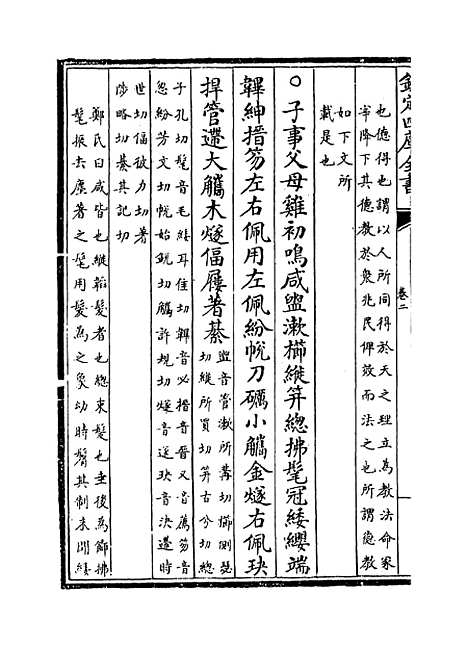 欽定四庫全書
卷二
也德得也謂以人所同得於天之理立為教法命冢
宰降下其德教於衆兆民俾效而法之也所謂德教
如下文所
載是也
○子事父母雞初鳴咸盥漱櫛縰筓總拂髦冠緌纓端
韠紳搢笏左右佩用左佩紛帨刀礪小觿金燧右佩玦
捍管遰大觿木燧偪屨著綦
盥音管漱所溝切櫛側瑟
切縰所買切筓古兮切總
子孔切髦音毛緌耳佳切韠音必搢音晉又音薦笏音
忽紛芳文切帨始銳切觿許規切燧音遂玦音決遰時
世切偪彼力切著
陟略切綦其記切
鄭氏曰咸皆也縰韜髮者也總束髮也垂後為飾拂
髦振去塵著之髦用髮為之象幼時鬌其制未聞緌